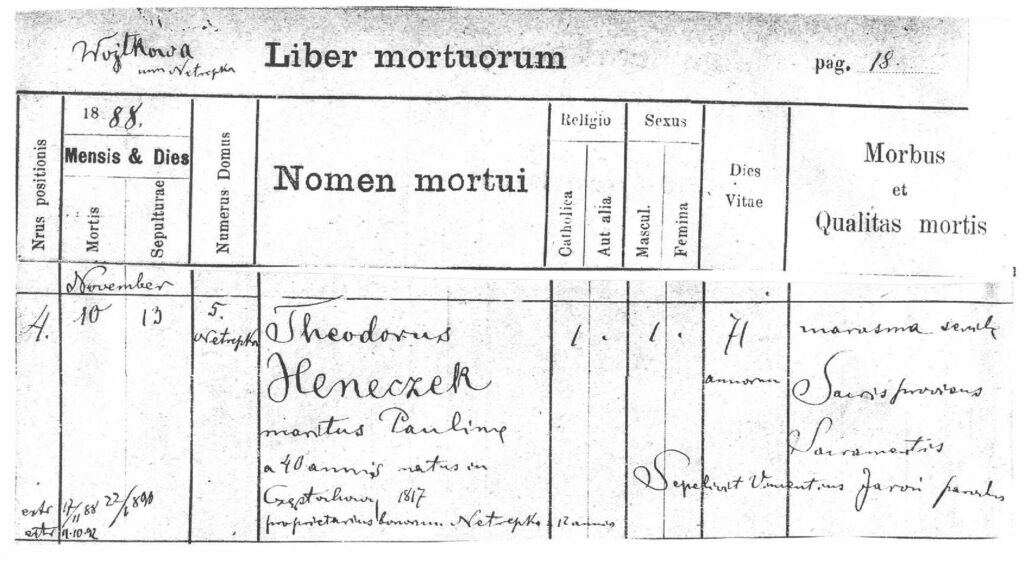 Wojtkowa
cum Netrepka
Liber mortuorum
pag. 18
Nrus positionis
1888.
Mensis & Dies
Mortis
Sepulturae
Numerus Domus
Nomen mortui
Religio
Catholica
Aut alia
Sexus
Mascul.
Femina
Dies
Vitae
Morbus
et
Qualitas mortis
November
4. 10 13 5. Netrepka Theodorus 1 . 1 . 71 marasma
Heneczek annorum
Sacris provisus
maritus Pauline
Sacramentis
a 40 annis natus in
Sepelivit Vincentius Jaroń parochus
Częstochowy 1817
extr 17/11 88 22/1 890
proprietarius bonorum Netrepka a 12 annis
extr 11.10.92